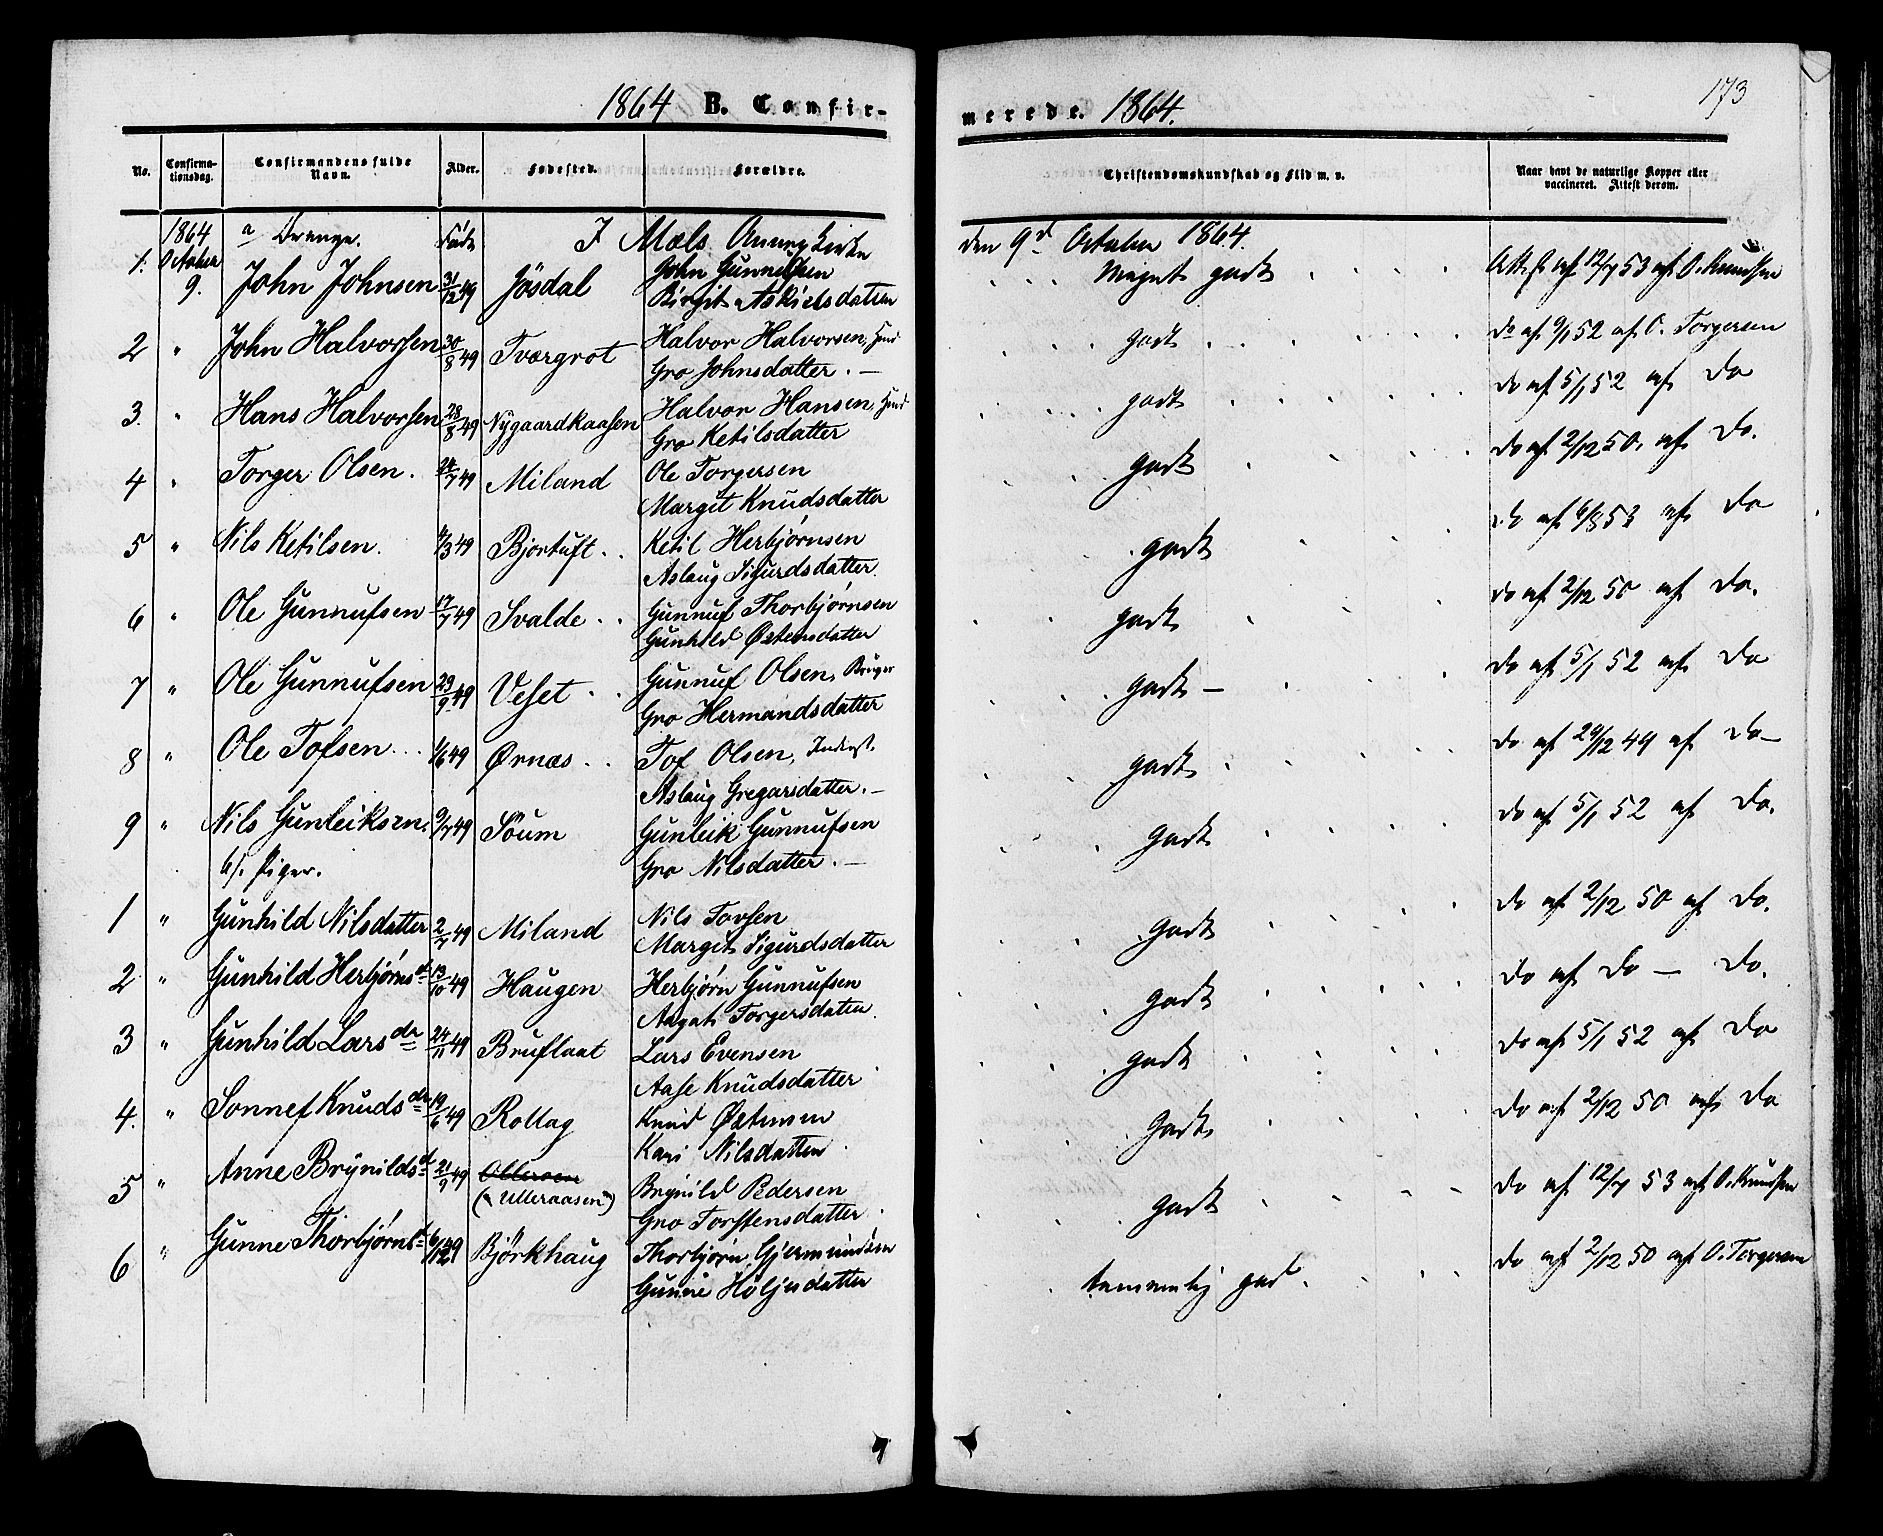 1864 B. Confir-
merede. 1864.
173
No.
Confirma-
tionsdag.
Confirmandens fulde
Navn.
Alder.
Fødested.
Forældre.
Christendomskundskab og Flid m. v.
Naar havt de naturlige Kopper eller
vaccineret. Attest derom.
1864 a Drenge. Født I Mæls Annexkirke den 9d October 1864.
1. October 9. John Johnsen 31/12 49 Jösdal John Gunnulfsen Meget godt Att. f. af 12/7 53 af O. Knudsen
Birgit Aslaksdatter
2 " John Halvorssen 30/8 49 Tværgrot Halvor Halvorsen, Huusd godt do af 9/1 52 af O. Torgersen
Gro Johnsdatter. —
3. " Hans Halvorssen 28/8 49 Nygaardkaasen Halvor Hansen, Huusd godt do af 5/1 52 af do
Gro Ketilsdatter
4 " Torger Olsen. 24/7 49 Miland Ole Torgersen godt do af 2/12 50. af do.
Margit Knudsdatter
5 " Nils Ketilsen. 4/3 49 Bjortuft Ketil Herbjørnsen godt do af 6/8 53 af do
Aslaug Sigurdsdatter.
6 " Ole Gunnufsen 17/7 49 Svalde Gunnuf Thorbjørnsen godt do af 2/12 50 af do.
Gunhild Østensdatter
7 " Ole Gunnufsen 29/9 49 Veset Gunnuf Olsen, Bruger godt — do af 5/1 52 af do
Gro Hermandsdatter
8 " Ole Tofsen 1/6 49 Ørnæs Tof Olsen, Inderst. godt do af 29/12 49 af do—
Aslaug Gregarsdatter. —
9 " Nils Gunleiksen. 9/7 49 Söum Gunleik Gunnufsen godt do af 5/1 52 af do.
Gro Nilsdatter. —
b/. Piger.
1 " Gunhild Nilsdatter 2/7 49 Miland Nils Tovsen godt do af 2/12 50 af do.
Margit Sigurdsdatter
2 " Gunhild Herbjørnsd 13/10 49 Haugen Herbjørn Gunnufsen godt do af do — do.
Aagat Torgersdatter.
3 " Gunhild Larsda 24/11 49 Bruflaat Lars Evensen godt do af 5/1 52 af do
Aase Knudsdatter
4. " Sonnef Knudsda 19/6 49 Rollag Knud Østensen godt do af 2/12 50 af do
Kari Nilsdatter.
5 " Anne Brynildsd 21/9 49 (Ulleraasen) Brynild Pedersen godt do af 12/7 53 af O. Knudsen
Gro Torstensdatter.
6 " Gunne Thorbjørnsd 6/12 49 Björkhaug Thorbjørn Gjermundsen temmelig god. do af 2/12 50 af O. Torgersen
Gunne Høljesdatter